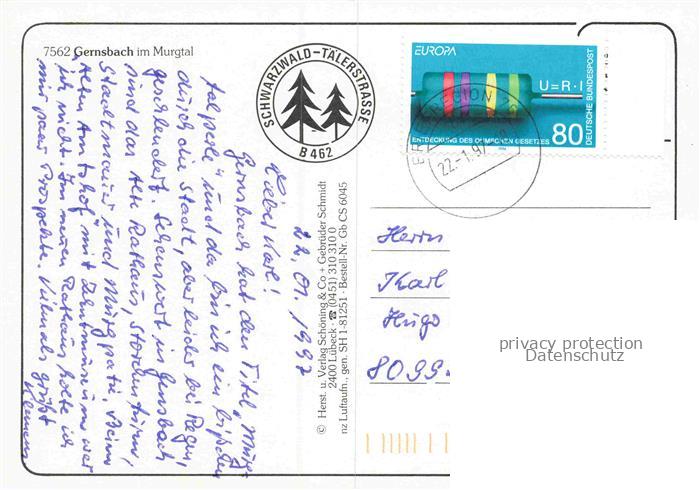 7562 Gernsbach im Murgtal
SCHWARZWALD-TÄLERSTRASSE
B 462
EUROPA
U=R·I
80
DEUTSCHE BUNDESPOST
ENTDECKUNG DES OHMSCHEN GESETZES
22.-1.97
22.01.1997
Lieber Karl!
Gernsbach hat den Titel „Murg-
talperle" und da bin ich ein bißchen
durch die Stadt, aber leider bei Regen,
geschlendert. Sehenswert in Gernsbach
sind das Alte Rathaus, Storchenturm,
Stadtmauer und Murgpartie, Beim
Alten Amtshof mit Zehntmuseum war
ich nicht. Im neuen Rathaus holte ich
mir paar Prospekte. Vielmals grüßt
Klemens
© Herst. u. Verlag Schöning & Co + Gebrüder Schmidt
2400 Lübeck · ☎ (0451) 310 310 0
nz Luftaufn., gen. SH 1-81251 · Bestell-Nr. Gb CS 6045
Herrn
Karl
Hugo
8099
privacy protection
Datenschutz